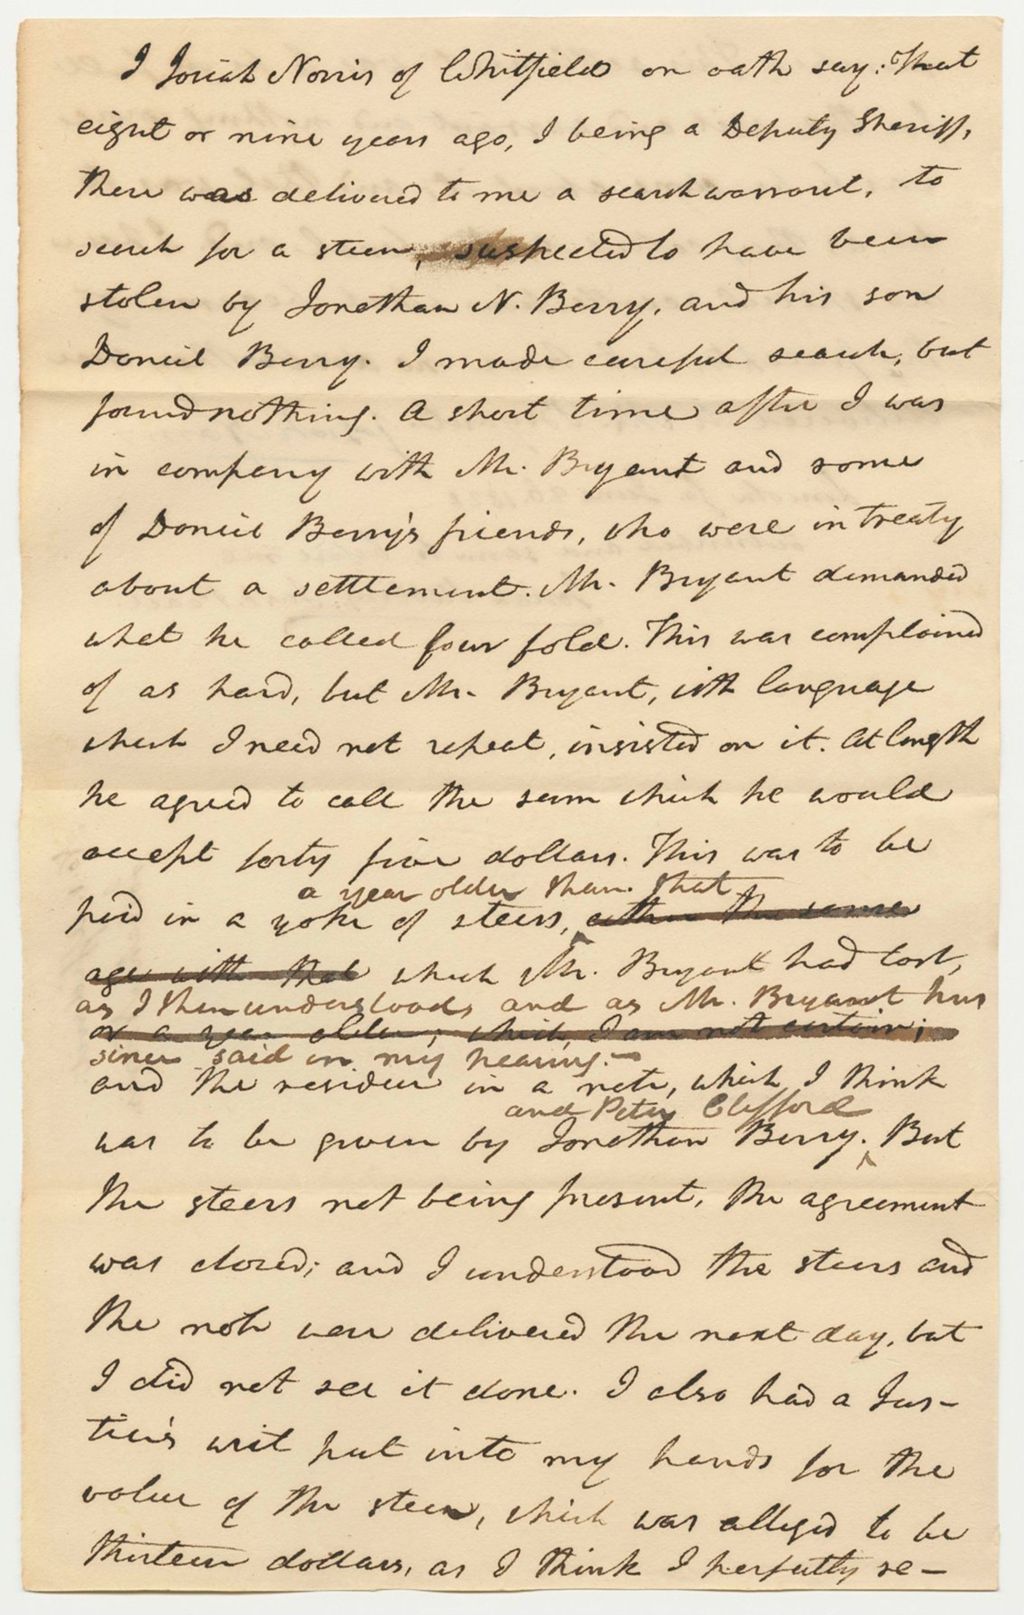 I Josiah Norris of Whitfield on oath say: That
eight or nine years ago, I being a Deputy Sheriff,
there was delivered to me a search warrant, to
search for a steer, suspected to have been
stolen by Jonathan N. Berry, and his son
Daniel Berry. I made careful search, but
found nothing. A short time after I was
in company with Mr. Bryant and some
of Daniel Berry's friends, who were in treaty
about a settlement. Mr. Bryant demanded
what he called four fold. This was complained
of as hard, but Mr. Bryant, with language
which I need not repeat, insisted on it. At length
he agreed to call the sum which he would
accept forty five dollars. This was to be
a year older than that
paid in a yoke of steers, either the same
age with that which Mr. Bryant had lost,
as I then understood, and as Mr. Bryant has
or a year older; which, I am not certain;
since said in my hearing.—
and the residue in a note, which I think
and Peter Clifford
was to be given by Jonathan Berry. But
the steers not being present, the agreement
was closed; and I understood the steers and
the note were delivered the next day, but
I did not see it done. I also had a Jus-
tice's writ put into my hands for the
value of the steer, which was alleged to be
thirteen dollars, as I think I perfectly re-